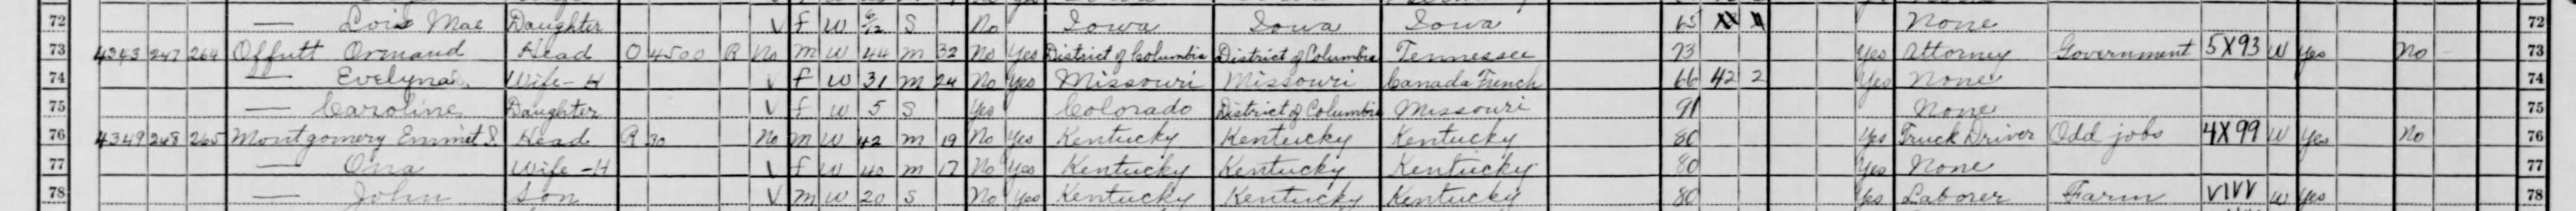 72 — Lois Mae Daughter V F W 6/12 S No Iowa Iowa Iowa 65 None 72
73 4343 247 264 Offutt Ormand Head O 4500 R No M W 44 M 32 No Yes District of Columbia District of Columbia Tennessee 93 Yes Attorney Government 5X93 W Yes No 73
74 — Evelyna Wife-H V F W 31 M 24 No Yes Missouri Missouri Canada French 66 42 2 Yes None 74
75 — Caroline Daughter V F W 5 S Yes Colorado District of Columbia Missouri 91 None 75
76 4349 248 265 Montgomery Emmit S. Head R 30 No M W 42 M 19 No Yes Kentucky Kentucky Kentucky 80 Yes Truck Driver Odd jobs 4X99 W Yes No 76
77 — Ona Wife-H V F W 40 M 17 No Yes Kentucky Kentucky Kentucky 80 Yes None 77
78 — John Son V M W 20 S No Yes Kentucky Kentucky Kentucky 80 Yes Laborer Farm VIVV W Yes 78